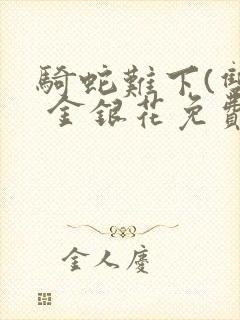 騎蛇難下(雙
金銀花免費
金人慶